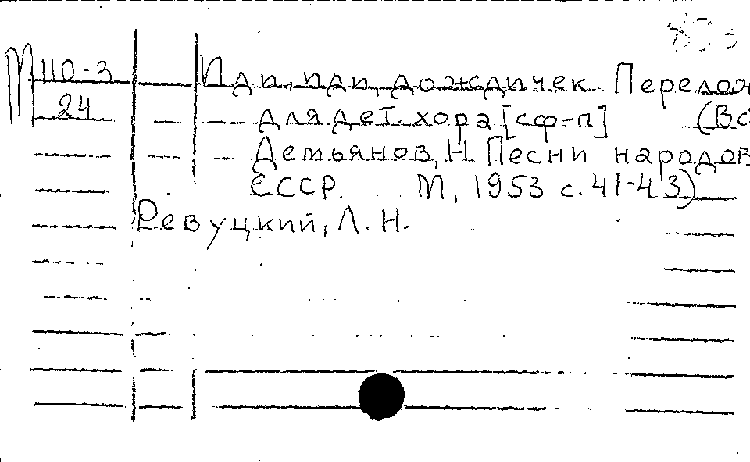 М 110-3 Иди, иди, дождичек Перелож
24 для дет. хора [с ф-п] (Вс
Демьянов, Н. Песни народов
СССР М, 1953 с. 41-43)
Ревуцкий, Л. Н.